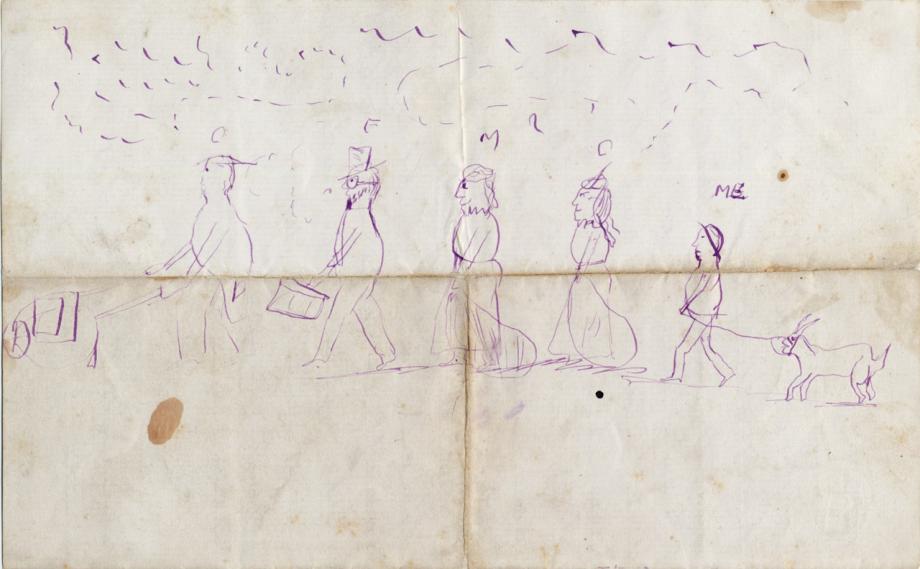 C F M C
ME